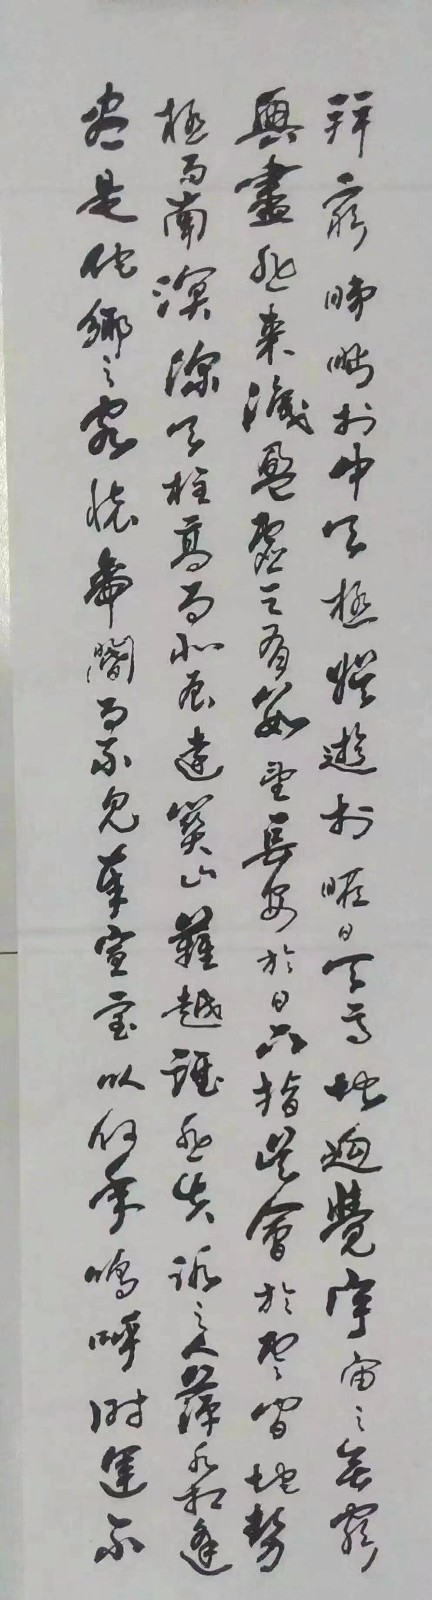 窮睇眄於中天極娛遊於暇日天高地迥覺宇宙之無窮
興盡悲來識盈虛之有數望長安於日下指吳會於雲間地勢
極而南溟深天柱高而北辰遠關山難越誰悲失路之人萍水相逢
盡是他鄉之客懷帝閽而不見奉宣室以何年嗚呼時運不